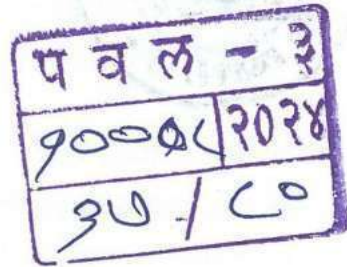 पवल - ३
१०००८ २०२४
३७ / ८०